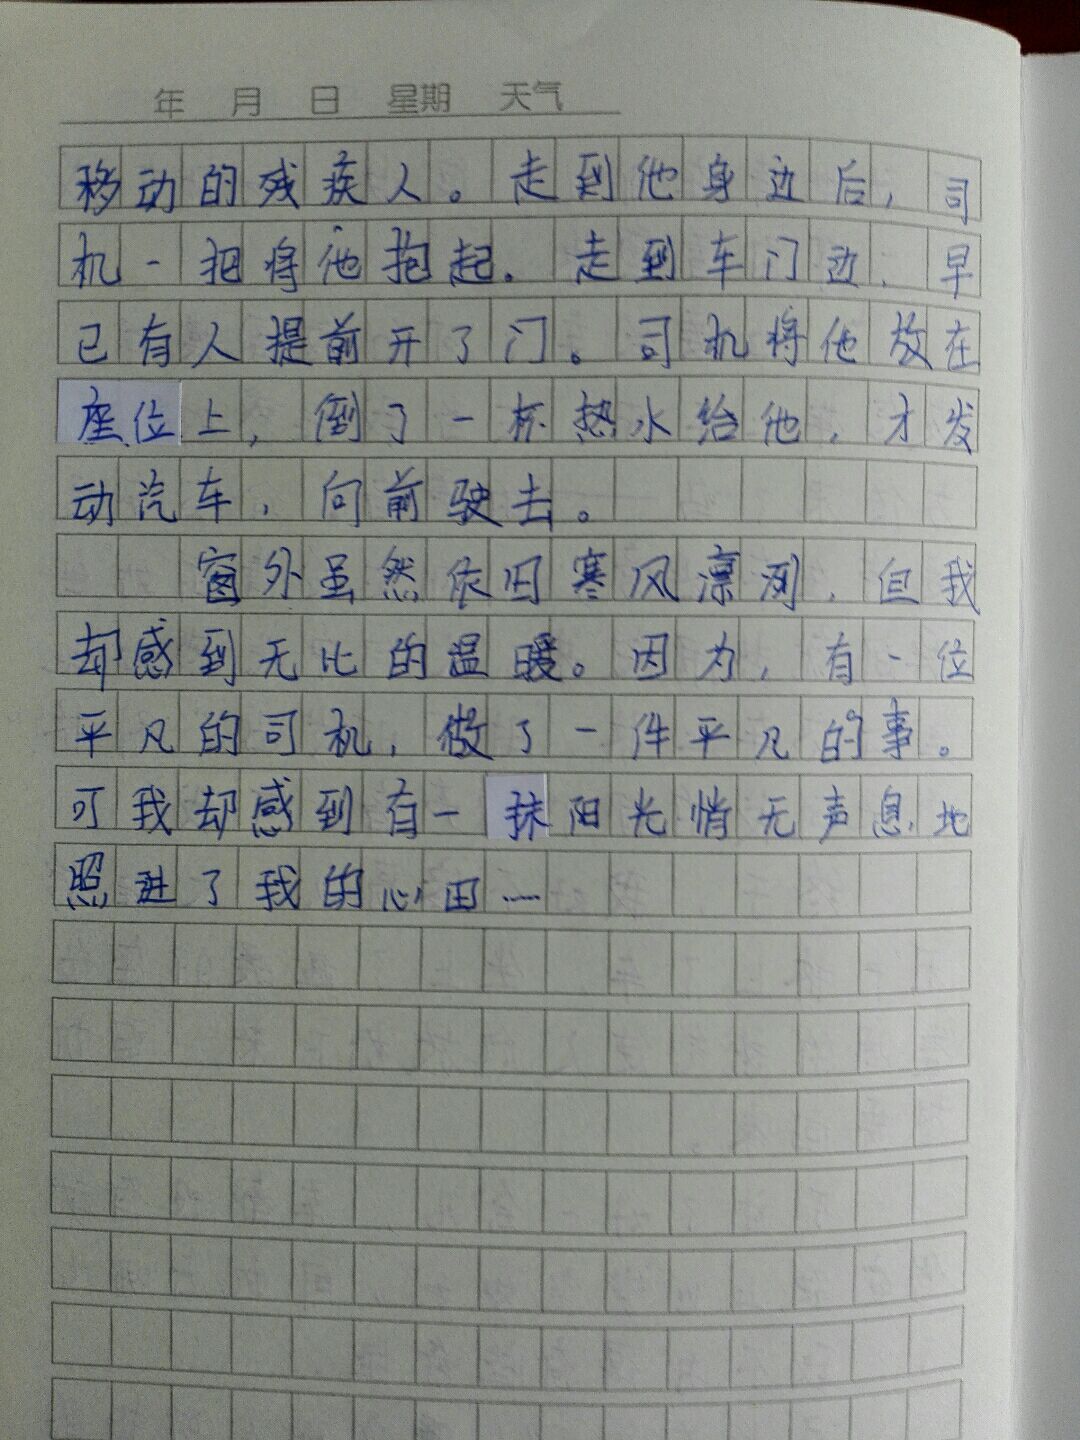 年 月 日 星期 天气
移动的残疾人。走到他身边后，司
机一把将他抱起。走到车门边，早
已有人提前开了门。司机将他放在
座位上，倒了一杯热水给他，才发
动汽车，向前驶去。
窗外虽然依旧寒风凛冽，但我
却感到无比的温暖。因为，有一位
平凡的司机，做了一件平凡的事。
可我却感到有一抹阳光悄无声息地
照进了我的心田……